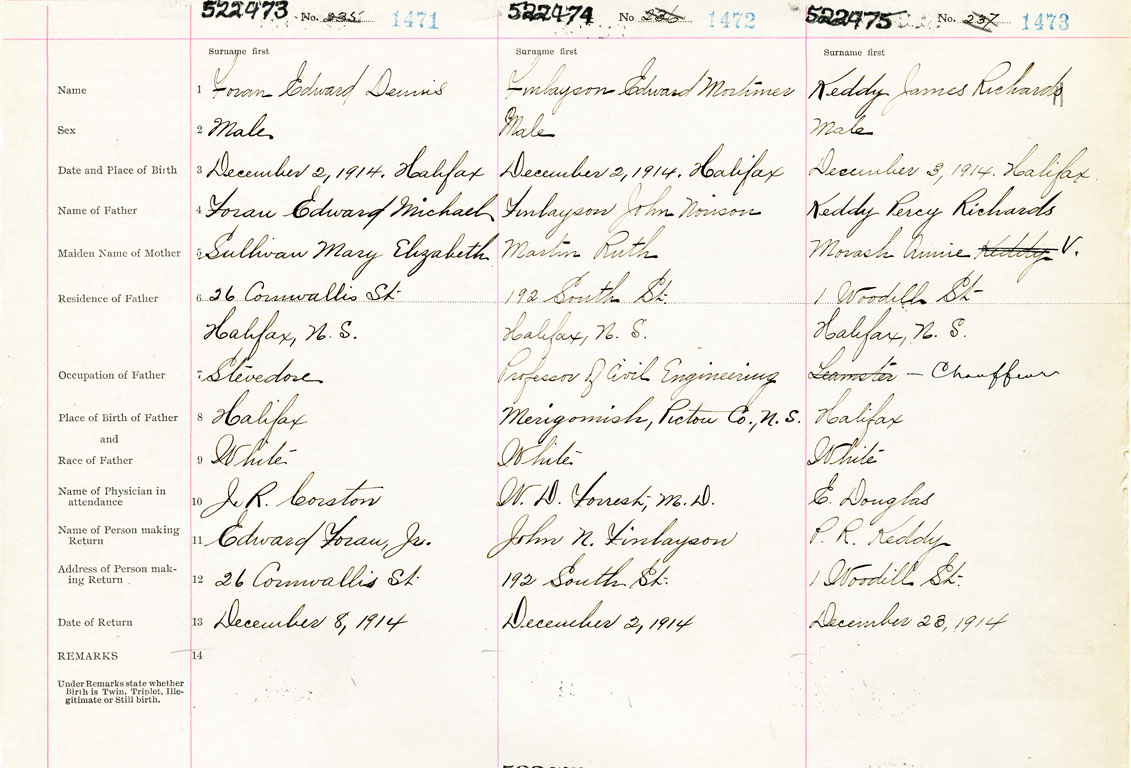 522473 No. 235 1471 522474 No 236 1472 522475 No. 237 1473
Surname first Surname first Surname first
Name 1 Foran Edward Dennis Finlayson Edward Mortimer Keddy James Richards
Sex 2 Male Male Male
Date and Place of Birth 3 December 2, 1914. Halifax December 2, 1914. Halifax December 3, 1914. Halifax.
Name of Father 4 Foran Edward Michael Finlayson John Keddy Percy Richards
Maiden Name of Mother 5 Sullivan Mary Elizabeth Martin Ruth Morash Annie Keddy V.
Residence of Father 6 26 Cornwallis St. 192 South St. 1 Woodill St.
Halifax, N. S. Halifax, N. S. Halifax, N. S.
Occupation of Father 7 Stevedore Professor of Civil Engineering Teamster – Chauffeur
Place of Birth of Father 8 Halifax Merigomish, Pictou Co., N.S. Halifax
and
Race of Father 9 White White White
Name of Physician in
attendance 10 J. R. Corston W. D. Forrest, M.D. E. Douglas
Name of Person making
Return 11 Edward Foran, Jr. John N. Finlayson P. R. Keddy
Address of Person mak-
ing Return 12 26 Cornwallis St. 192 South St. 1 Woodill St.
Date of Return 13 December 8, 1914 December 2, 1914 December 23, 1914
REMARKS 14
Under Remarks state whether
Birth is Twin, Triplet, Ille-
gitimate or Still birth.